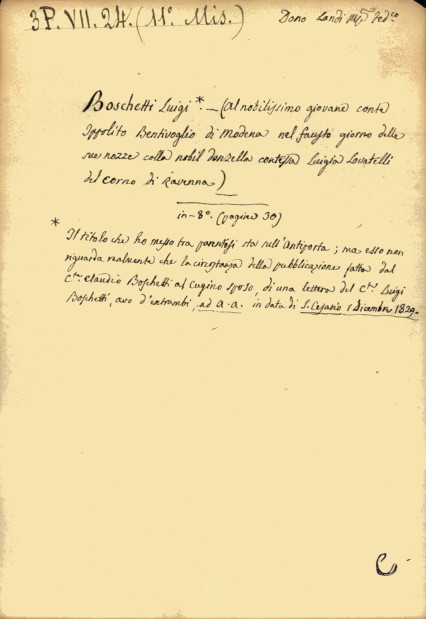 3P. VII. 24. (11° Mis.)
Dono Landi
Boschetti Luigi * _ (Al nobilissimo giovane conte
Ippolito Bentivoglio di Modena nel fausto giorno delle
sue nozze colla nobil donzella contessa Luigia Lovatelli
del corno di Ravenna)
in-8°. (pagine 30)
* Il titolo che ho messo tra parentesi sta sull'antiporta; ma esso non
riguarda realmente che la circostanza della pubblicazione fatta dal
Cte. Claudio Boschetti al Cugino sposo, di una lettera del Cte. Luigi
Boschetti, avo d'entrambi, ad A.A. in data di S. Cesario 1 Dicembre 1829.